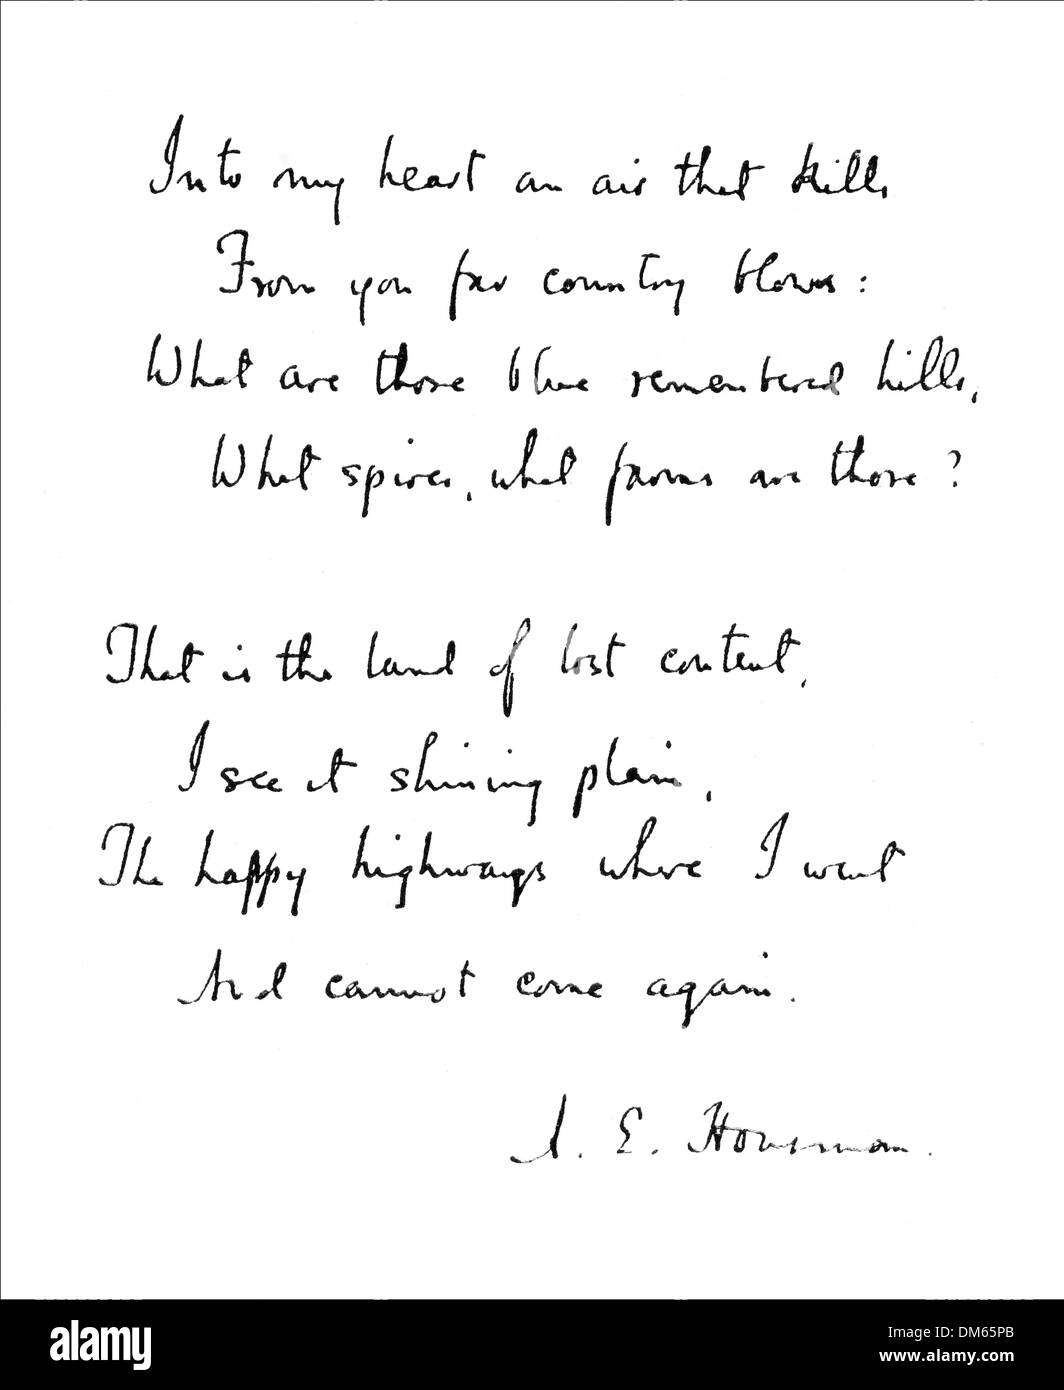 Into my heart an air that kills
From yon far country blows:
What are those blue remembered hills,
What spires, what farms are those?
That is the land of lost content,
I see it shining plain,
The happy highways where I went
And cannot come again.
A. E. Housman.
alamy
Image ID: DM65PB
www.alamy.com